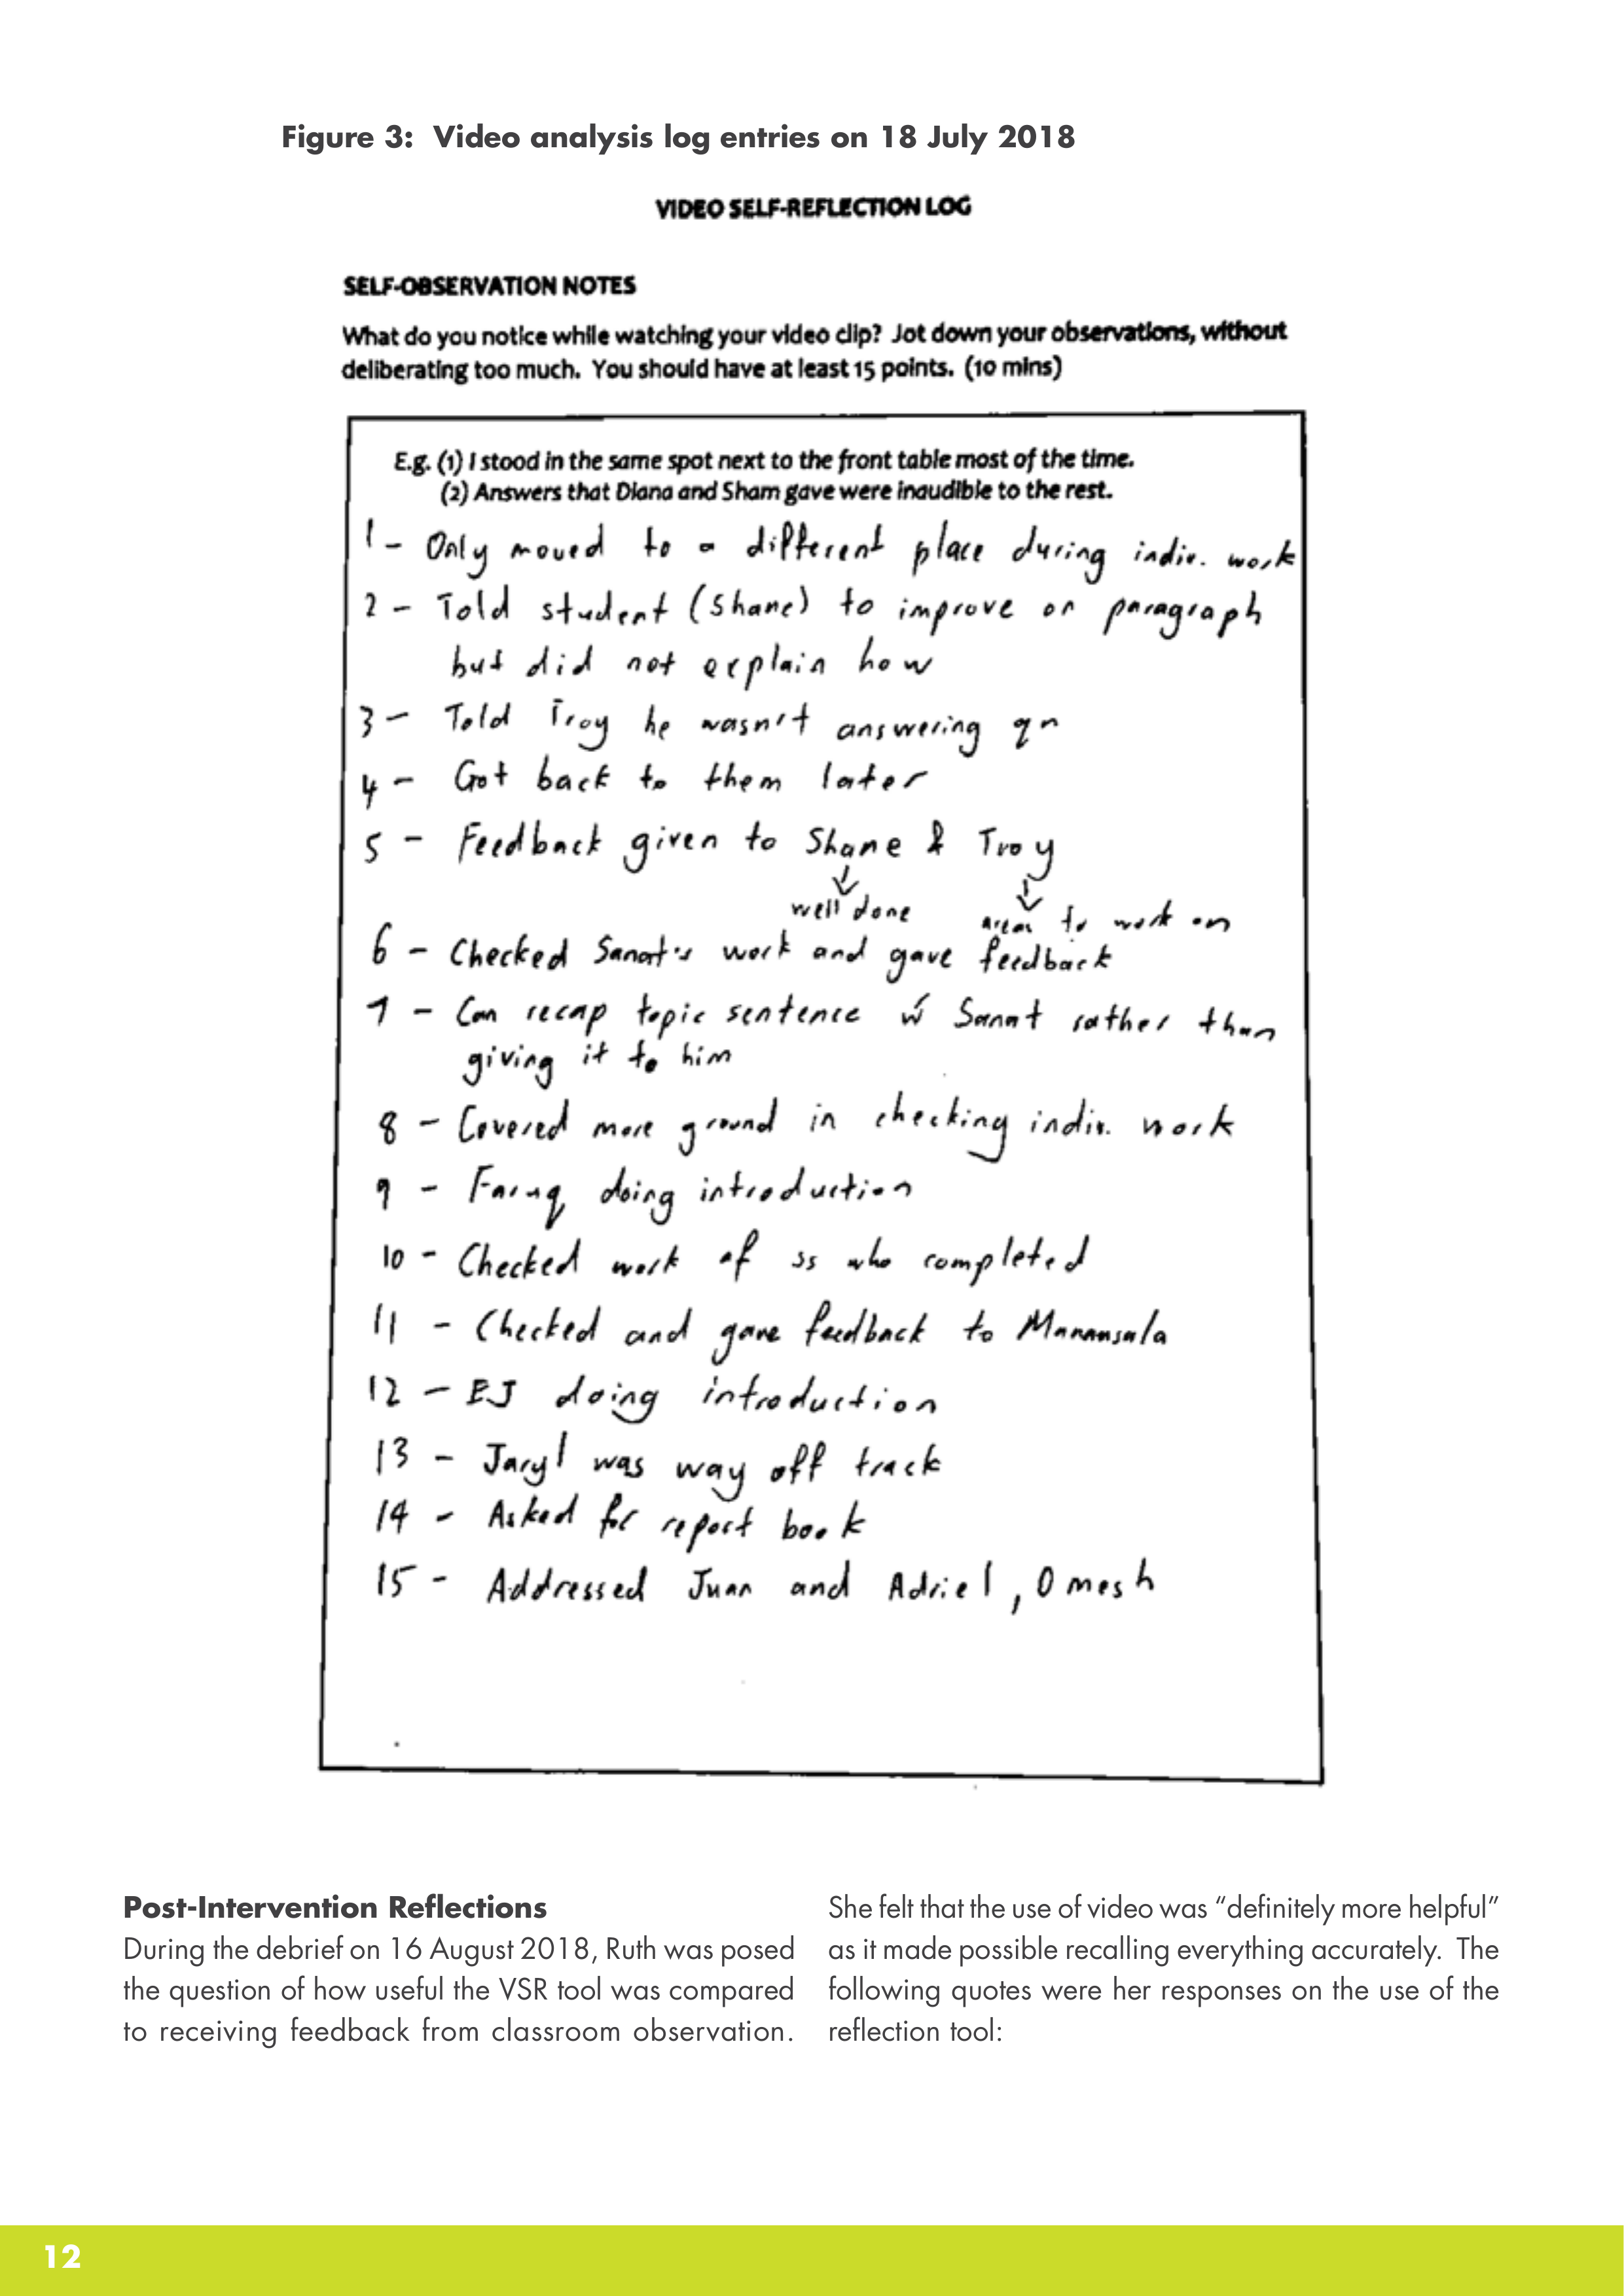 Figure 3: Video analysis log entries on 18 July 2018
VIDEO SELF-REFLECTION LOG
SELF-OBSERVATION NOTES
What do you notice while watching your video clip? Jot down your observations, without
deliberating too much. You should have at least 15 points. (10 mins)
E.g. (1) I stood in the same spot next to the front table most of the time.
(2) Answers that Diana and Sham gave were inaudible to the rest.
1 - Only moved to a different place during indiv. work
2 - Told student (Shane) to improve on paragraph
but did not explain how
3 - Told Troy he wasn't answering qn
4 - Got back to them later
5 - Feedback given to Shane & Troy
well done areas to work on
6 - Checked Sanat's work and gave feedback
7 - Can recap topic sentence w Sanat rather than
giving it to him
8 - Covered more ground in checking indiv. work
9 - Faruq doing introduction
10 - Checked work of ss who completed
11 - Checked and gave feedback to Manansala
12 - EJ doing introduction
13 - Jaryl was way off track
14 - Asked for report book
15 - Addressed Juan and Adriel, Omesh
Post-Intervention Reflections
During the debrief on 16 August 2018, Ruth was posed
the question of how useful the VSR tool was compared
to receiving feedback from classroom observation.
She felt that the use of video was “definitely more helpful”
as it made possible recalling everything accurately. The
following quotes were her responses on the use of the
reflection tool:
12